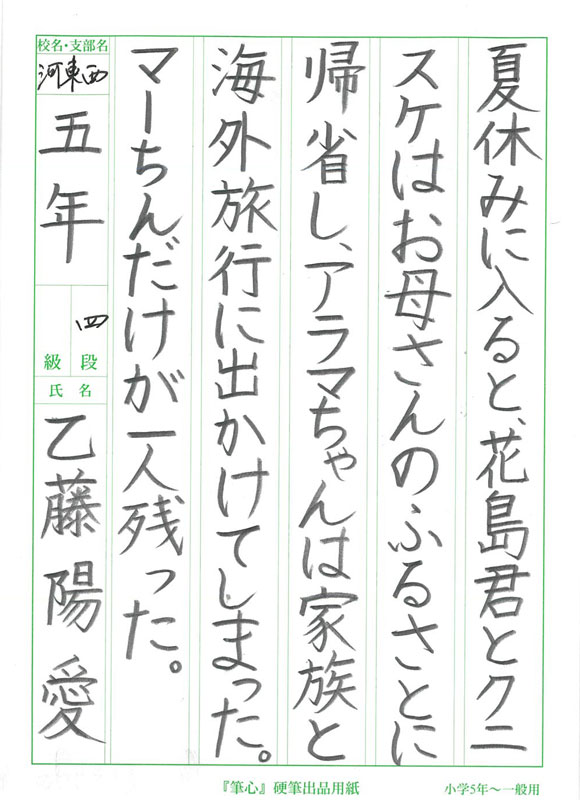 夏休みに入ると、花島君とクニ
スケはお母さんのふるさとに
帰省し、アラマちゃんは家族と
海外旅行に出かけてしまった。
マーちんだけが一人残った。
校名・支部名
河東西
五年
四
級 段
氏名
乙藤陽愛
『筆心』硬筆出品用紙
小学5年〜一般用